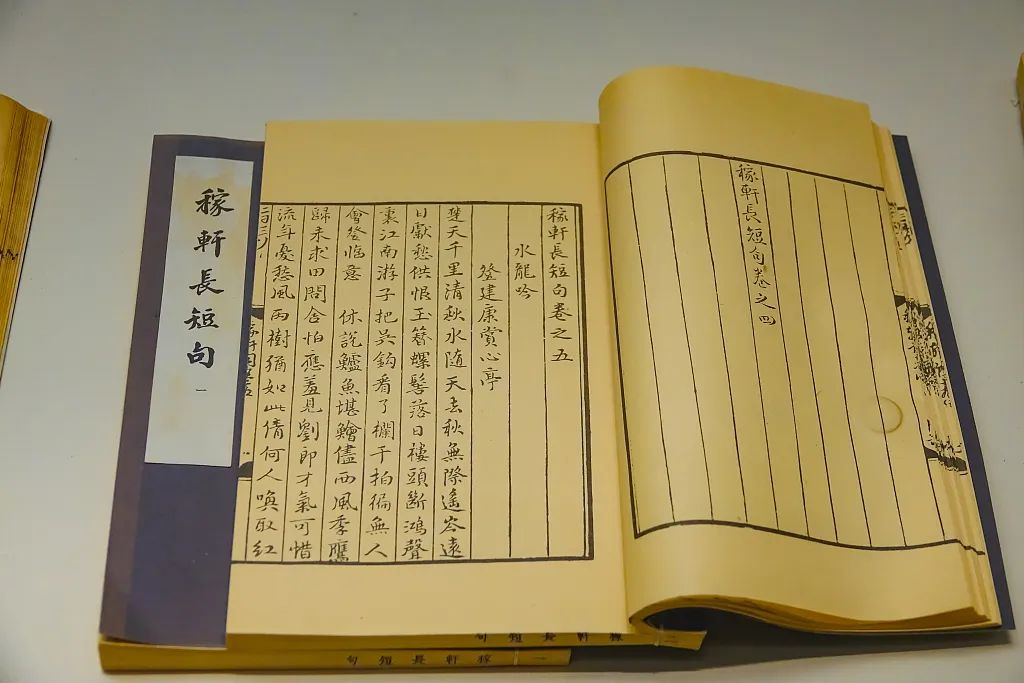 稼軒長短句卷之四
稼軒長短句卷之五
水龍吟
登建康賞心亭
楚天千里清秋水随天去秋無際遙岑遠
目獻愁供恨玉簪螺髻落日樓頭斷鴻聲
裏江南游子把吳鈎看了欄干拍徧無人
會登臨意 休說鱸魚堪鱠儘西風季鷹
歸未求田問舍怕應羞見劉郎才氣可惜
流年憂愁風雨樹猶如此倩何人喚取紅
稼軒長短句 一
稼軒長短句
一 稼軒長短句